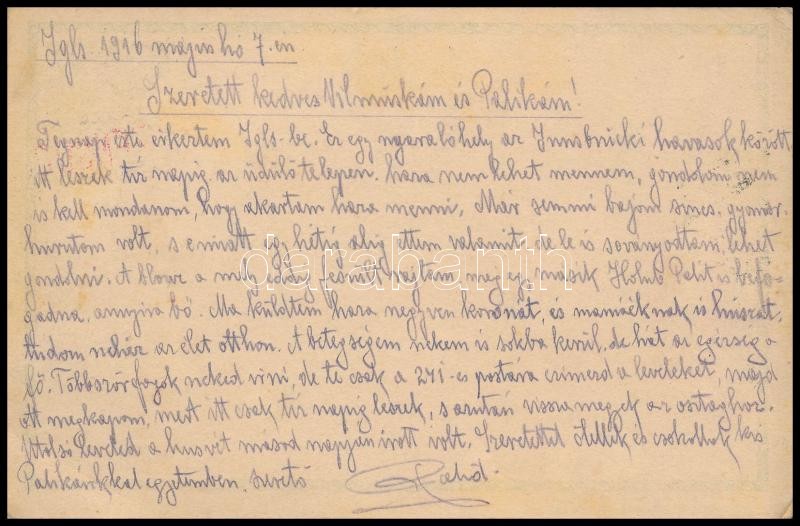 Igls. 1916 május hó 7.-én
Szeretett kedves Vilmuskám és Palikám!
Tegnap este érkeztem Igls-be. Ez egy nyaralóhely az Innsbrucki havasok között
itt leszek tíz napig az üdülőtelepen. haza nem lehet mennem, gondolom nem
is kell mondanom, hogy akartam haza menni. Már semmi bajom sincs. gyomor-
hurutom volt, s emiatt egy hétig alig ettem valamit, de le is soványodtam lehet
gondolni. A blouz a mi eddig feszült rajtam még egy másik Holub Palit is befo-
gadna, annyira bő. Ma küldtem haza negyven koronát, és mamáéknak is húszat.
tudom nehéz az élet otthon. A betegségem nekem is sokba kerül, de hát az egészség a
fő. Többször fogok neked írni, de te csak a 271-es postára címezd a leveleket, majd
ott megkapom, mert itt csak tíz napig leszek, s azután vissza megyek az osztaghoz.
Utolsó leveled a husvét másod napján írott volt. Szeretettel ölellek és csókollak kis
Palikánkkal egyetemben. szerető
darabanth